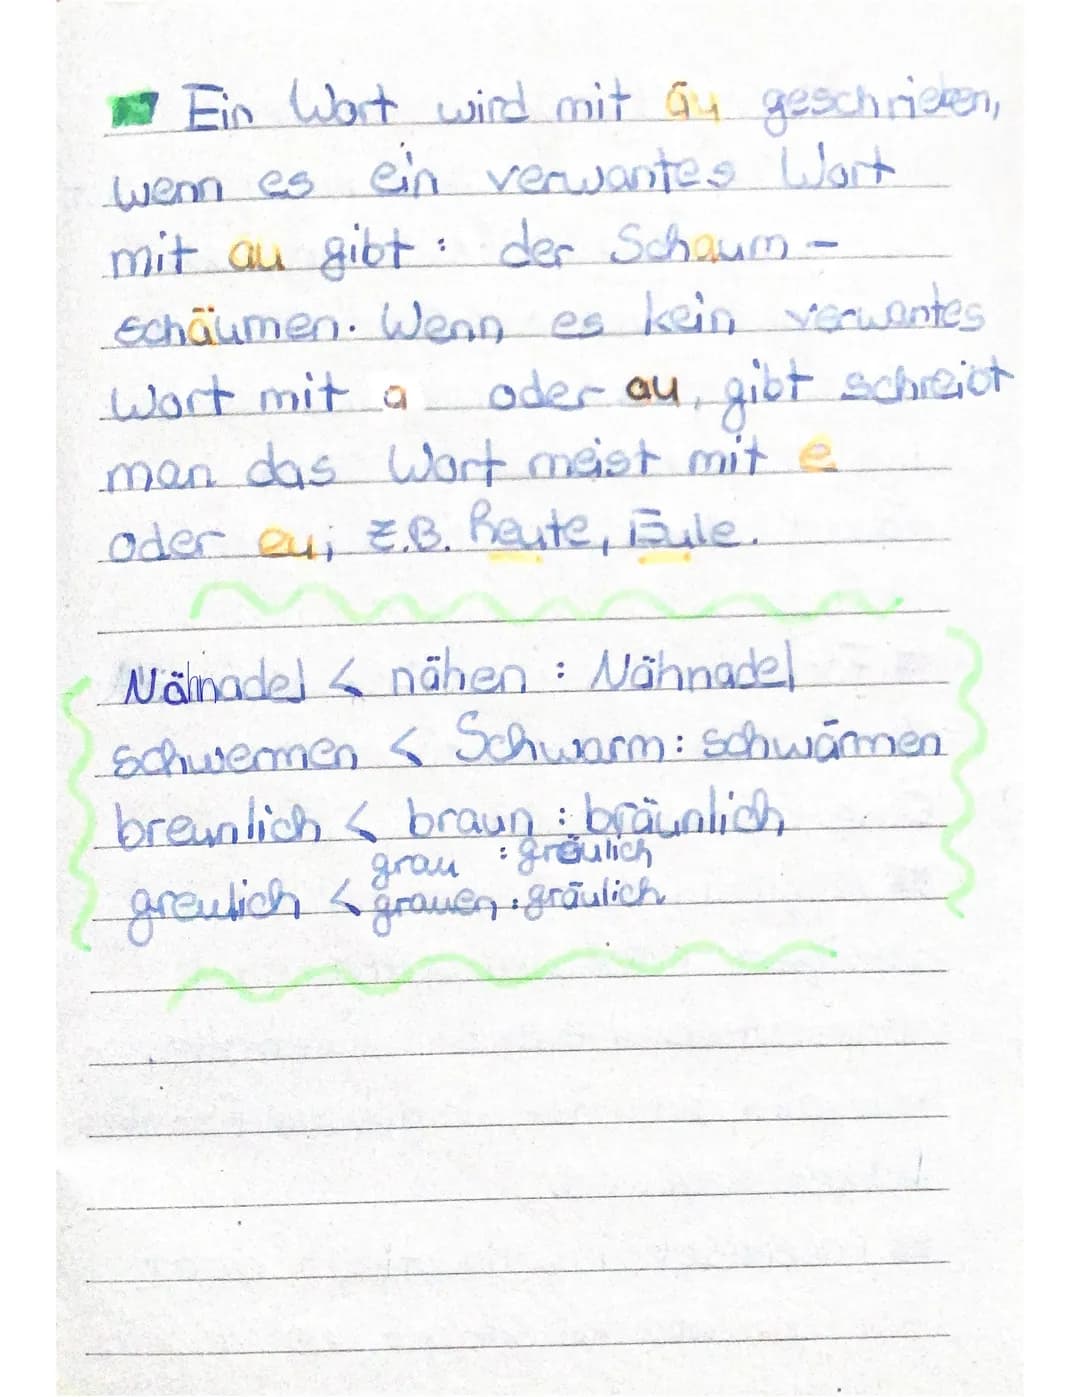 Ein Wort wird mit äu geschrieben,
wenn es ein verwantes Wort
mit au gibt: der Schaum -
schäumen. Wenn es kein verwantes
Wort mit a oder au, gibt schreibt
man das Wort meist mit e
oder eu; z.B. heute, Eule.
Nähnadel < nähen : Nähnadel
schwermen < Schwarm: schwärmen
breunlich < braun : bräunlich
grau : gräulich
greulich < grauen : gräulich